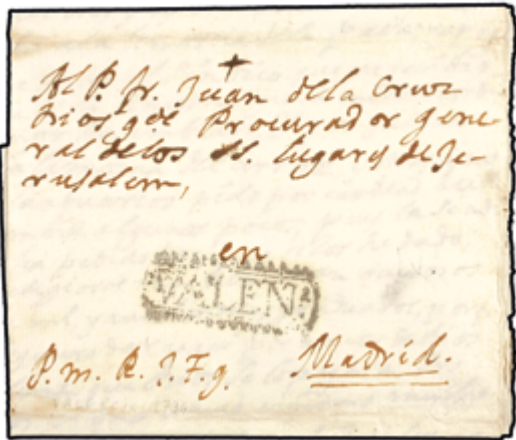 +
Al P. fr. Juan de la Cruz
Dios g.de Procurador gene-
ral de los SS. Lugares de Je-
rusalem,
en
VALEN.
P. m. R. J. F. g. Madrid.